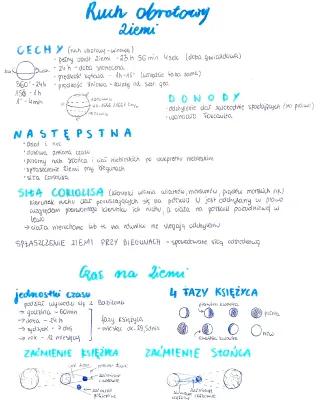 Ruch obrotowy
Ziemi
CECHY (ruch obrotowy - wirowy)
• pełny obrót Ziemi - 23h 56 min 4 sek (doba gwiazdowa)
• 24h - doba słoneczna
• prędkość kątowa - 1h - 15° (wszędzie taka sama)
• prędkość liniowa - zależy od szer. geo.
360° - 24h
15° - 1h
1° - 4 min
DOWODY
• odchylenie ciał swobodnie spadających (na prawo)
• wahadło Foucaulta
NASTĘPSTWA
• dzień i noc
• dobowa zmiana czasu
• pozorny ruch Słońca i ciał niebieskich po widnokręgu niebieskim
• spłaszczenie Ziemi przy biegunach
• siła Coriolisa
SIŁA CORIOLISA (kierunki wiania wiatrów, monsunów, prądów morskich itp.)
kierunek ruchu ciał poruszających się na półkuli N jest odchylany w prawo
względem pierwotnego kierunku ich ruchu, a ciała na półkuli południowej w
lewo
→ ciała nieruchome lub te na równiku nie ulegają odchyleniu
SPŁASZCZENIE ZIEMI PRZY BIEGUNACH - spowodowane siłą odśrodkową
Czas na Ziemi
jednostki czasu
podział wywodzi się z Babilonu
→ godzina - 60 min
→ doba - 24 h
→ tydzień - 7 dni
→ rok - 12 miesięcy
fazy księżyca
• miesiąc ok. 29,5 dnia
4 FAZY KSIĘŻYCA
pierwsza kwadra
pełnia
nów
ZAĆMIENIE KSIĘŻYCA
ZAĆMIENIE SŁOŃCA